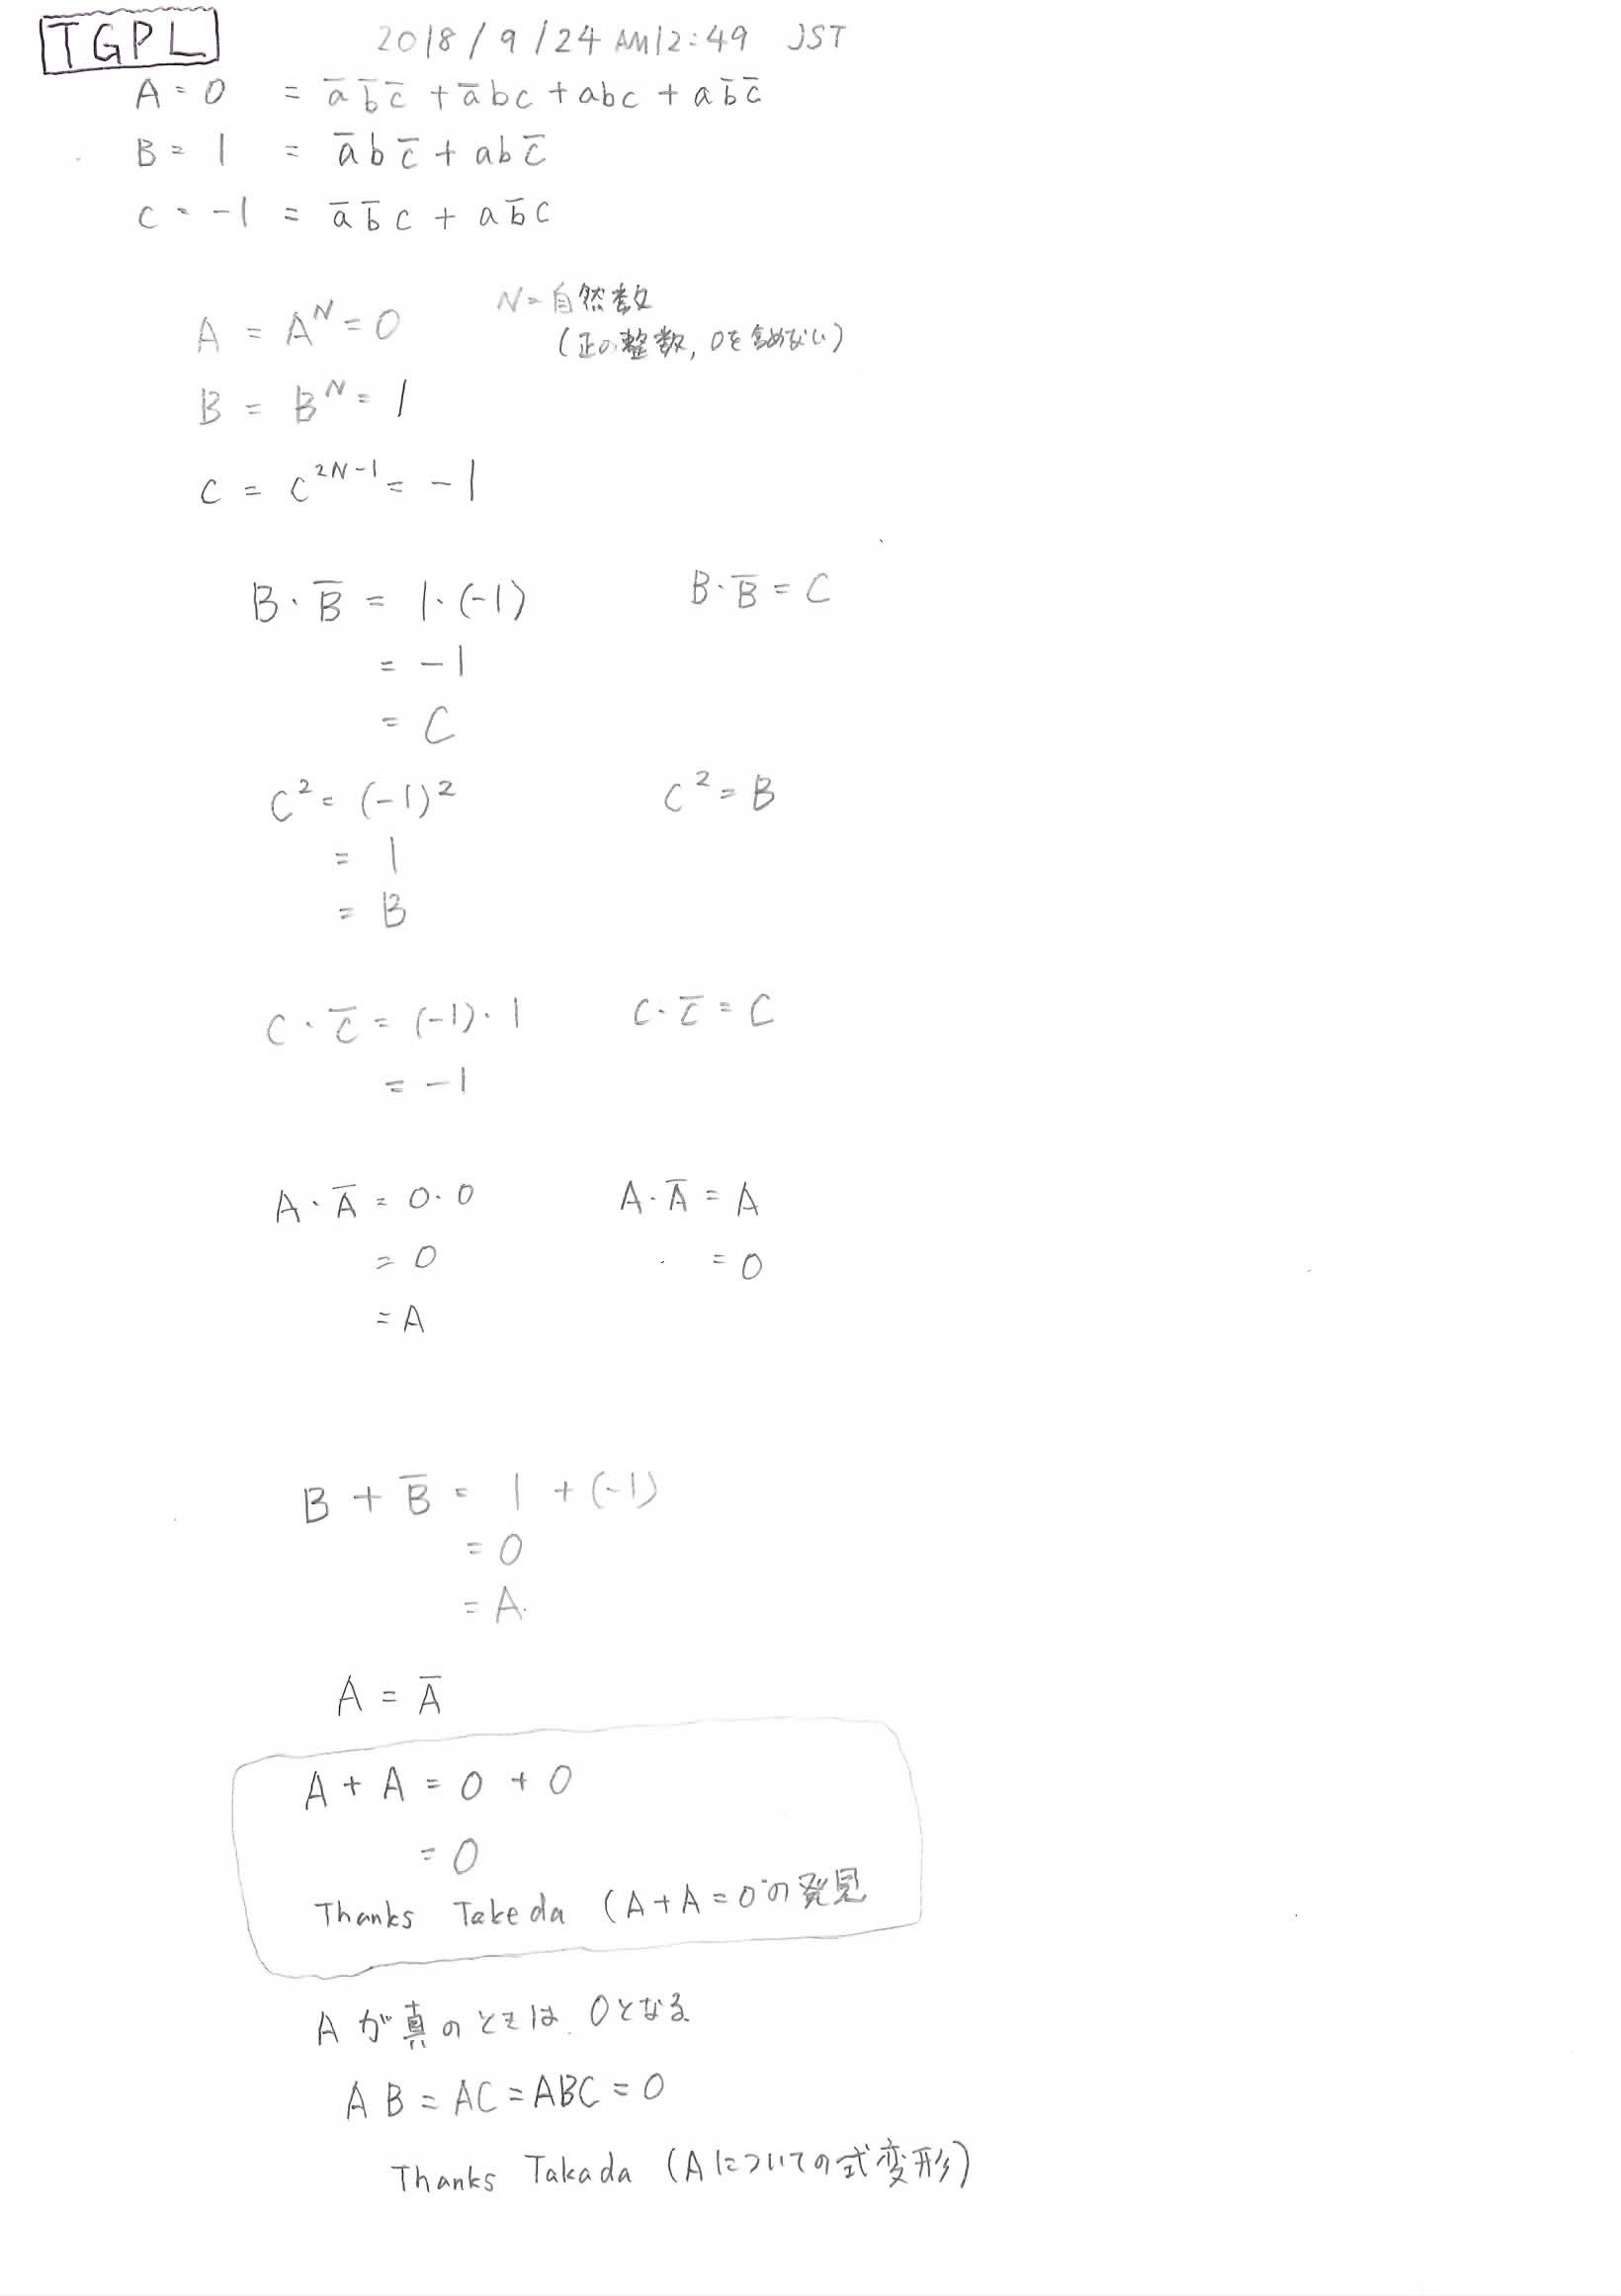 TGPL 2018/9/24 AM12:49 JST
A = 0 = a̅ b̅ c̅ + a̅ b c + a b c + a b̅ c̅
B = 1 = a̅ b c̅ + a b c̅
C = -1 = a̅ b̅ c + a b̅ c
N = 自然数
A = A^N = 0
(正の整数, 0を含めない)
B = B^N = 1
C = C^{2N-1} = -1
B · B̅ = 1 · (-1) B · B̅ = C
= -1
= C
C² = (-1)² C² = B
= 1
= B
C · C̅ = (-1) · 1 C · C̅ = C
= -1
A · A̅ = 0 · 0 A · A̅ = A
= 0 = 0
= A
B + B̅ = 1 + (-1)
= 0
= A
A = A̅
A + A = 0 + 0
= 0
Thanks Takeda (A + A = 0の発見
Aが真のときは 0となる
AB = AC = ABC = 0
Thanks Takada (Aについての式変形)